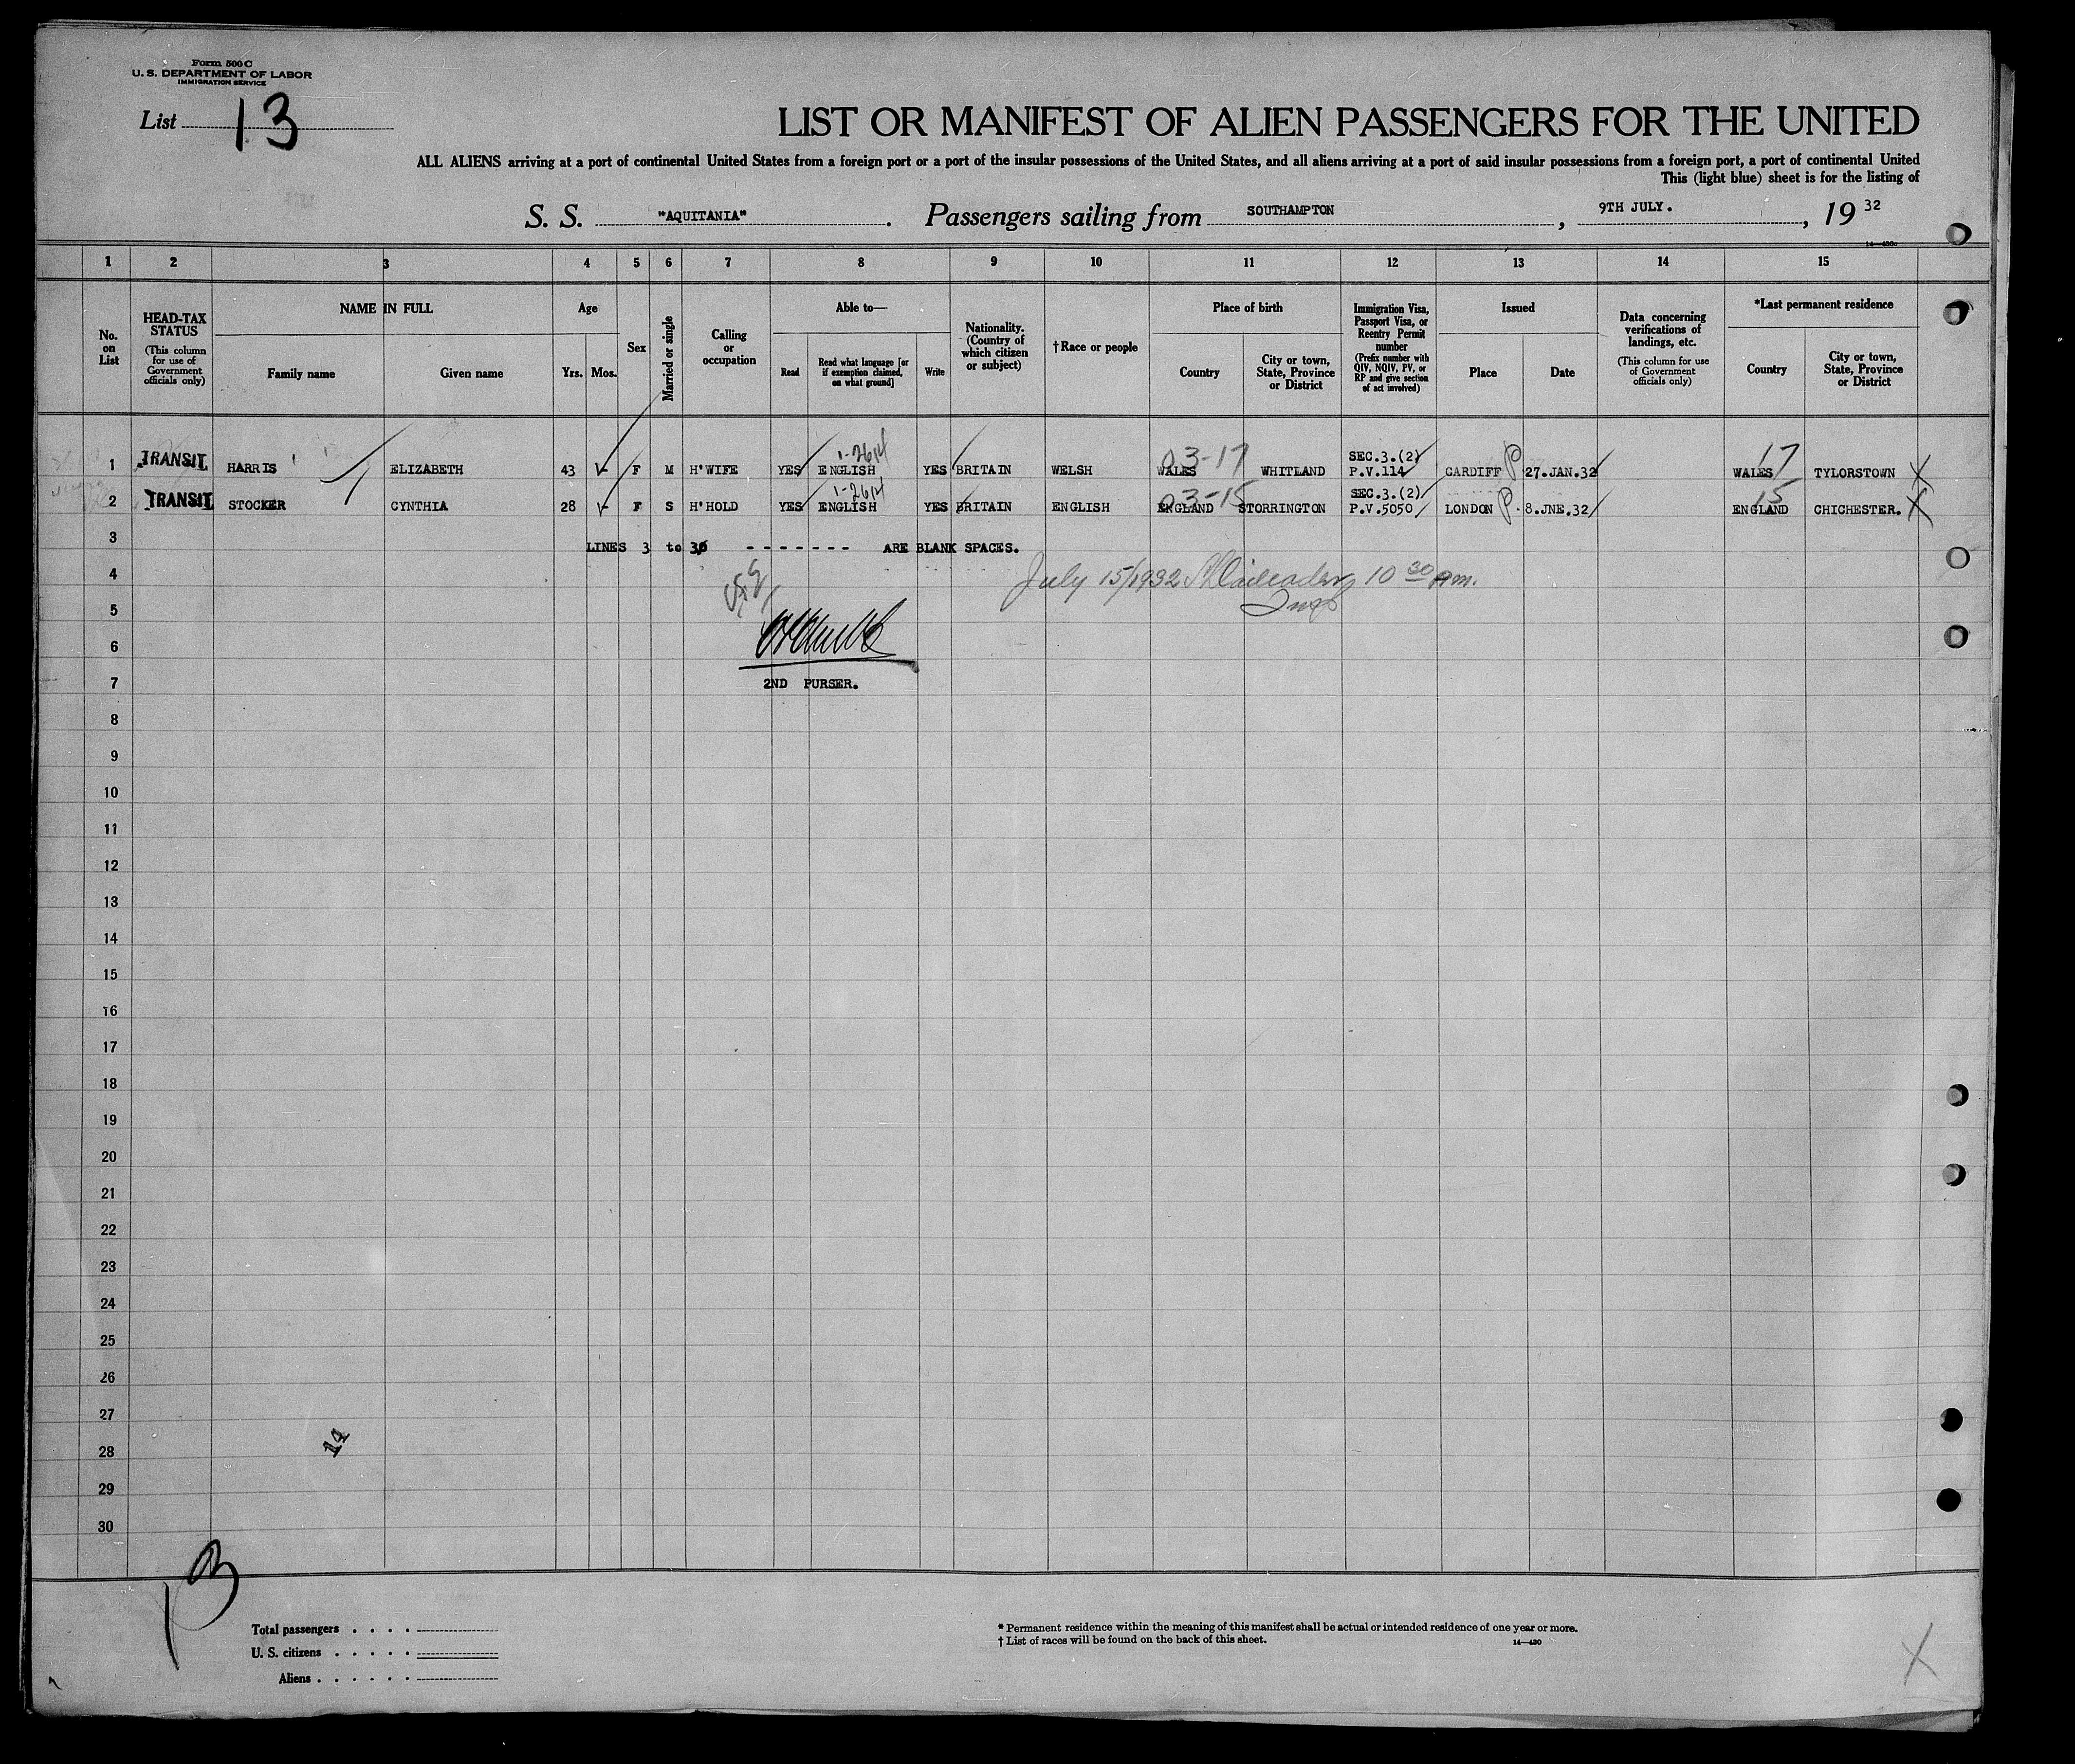 Form 500 C
U. S. DEPARTMENT OF LABOR
IMMIGRATION SERVICE
List 13
LIST OR MANIFEST OF ALIEN PASSENGERS FOR THE UNITED
ALL ALIENS arriving at a port of continental United States from a foreign port or a port of the insular possessions of the United States, and all aliens arriving at a port of said insular possessions from a foreign port, a port of continental United
This (light blue) sheet is for the listing of
S. S. "AQUITANIA". Passengers sailing from SOUTHAMPTON, 9TH JULY., 19 32
14—430c
1 2 3 4 5 6 7 8 9 10 11 12 13 14 15
No. on List
HEAD-TAX STATUS (This column for use of Government officials only)
NAME IN FULL
Family name
Given name
Age
Yrs. Mos.
Sex
Married or single
Calling or occupation
Able to—
Read
Read what language [or if exemption claimed, on what ground]
Write
Nationality. (Country of which citizen or subject)
†Race or people
Place of birth
Country
City or town, State, Province or District
Immigration Visa, Passport Visa, or Reentry Permit number (Prefix number with QIV, NQIV, PV, or RP and give section of act involved)
Issued
Place
Date
Data concerning verifications of landings, etc. (This column for use of Government officials only)
*Last permanent residence
Country
City or town, State, Province or District
1-2614 03-17 SEC.3.(2) 17
1 TRANSIT HARRIS ELIZABETH 43 - F M H'WIFE YES ENGLISH YES BRITAIN WELSH WALES WHITLAND P.V.114 CARDIFF P 27.JAN.32 WALES TYLORSTOWN X
1-2614 03-15 SEC.3.(2) 15
2 TRANSIT STOCKER CYNTHIA 28 - F S H'HOLD YES ENGLISH YES BRITAIN ENGLISH ENGLAND STORRINGTON P.V.5050 LONDON P 8.JNE.32 ENGLAND CHICHESTER. X
3 LINES 3 to 30 - - - - - - - ARE BLANK SPACES.
4 July 15/1932 10 30 am.
5
6
7 2ND PURSER.
8
9
10
11
12
13
14
15
16
17
18
19
20
21
22
23
24
25
26
27
28 14
29
30
13
Total passengers . . . .
U. S. citizens . . . . .
Aliens . . . . . .
* Permanent residence within the meaning of this manifest shall be actual or intended residence of one year or more.
† List of races will be found on the back of this sheet.
14—430
X